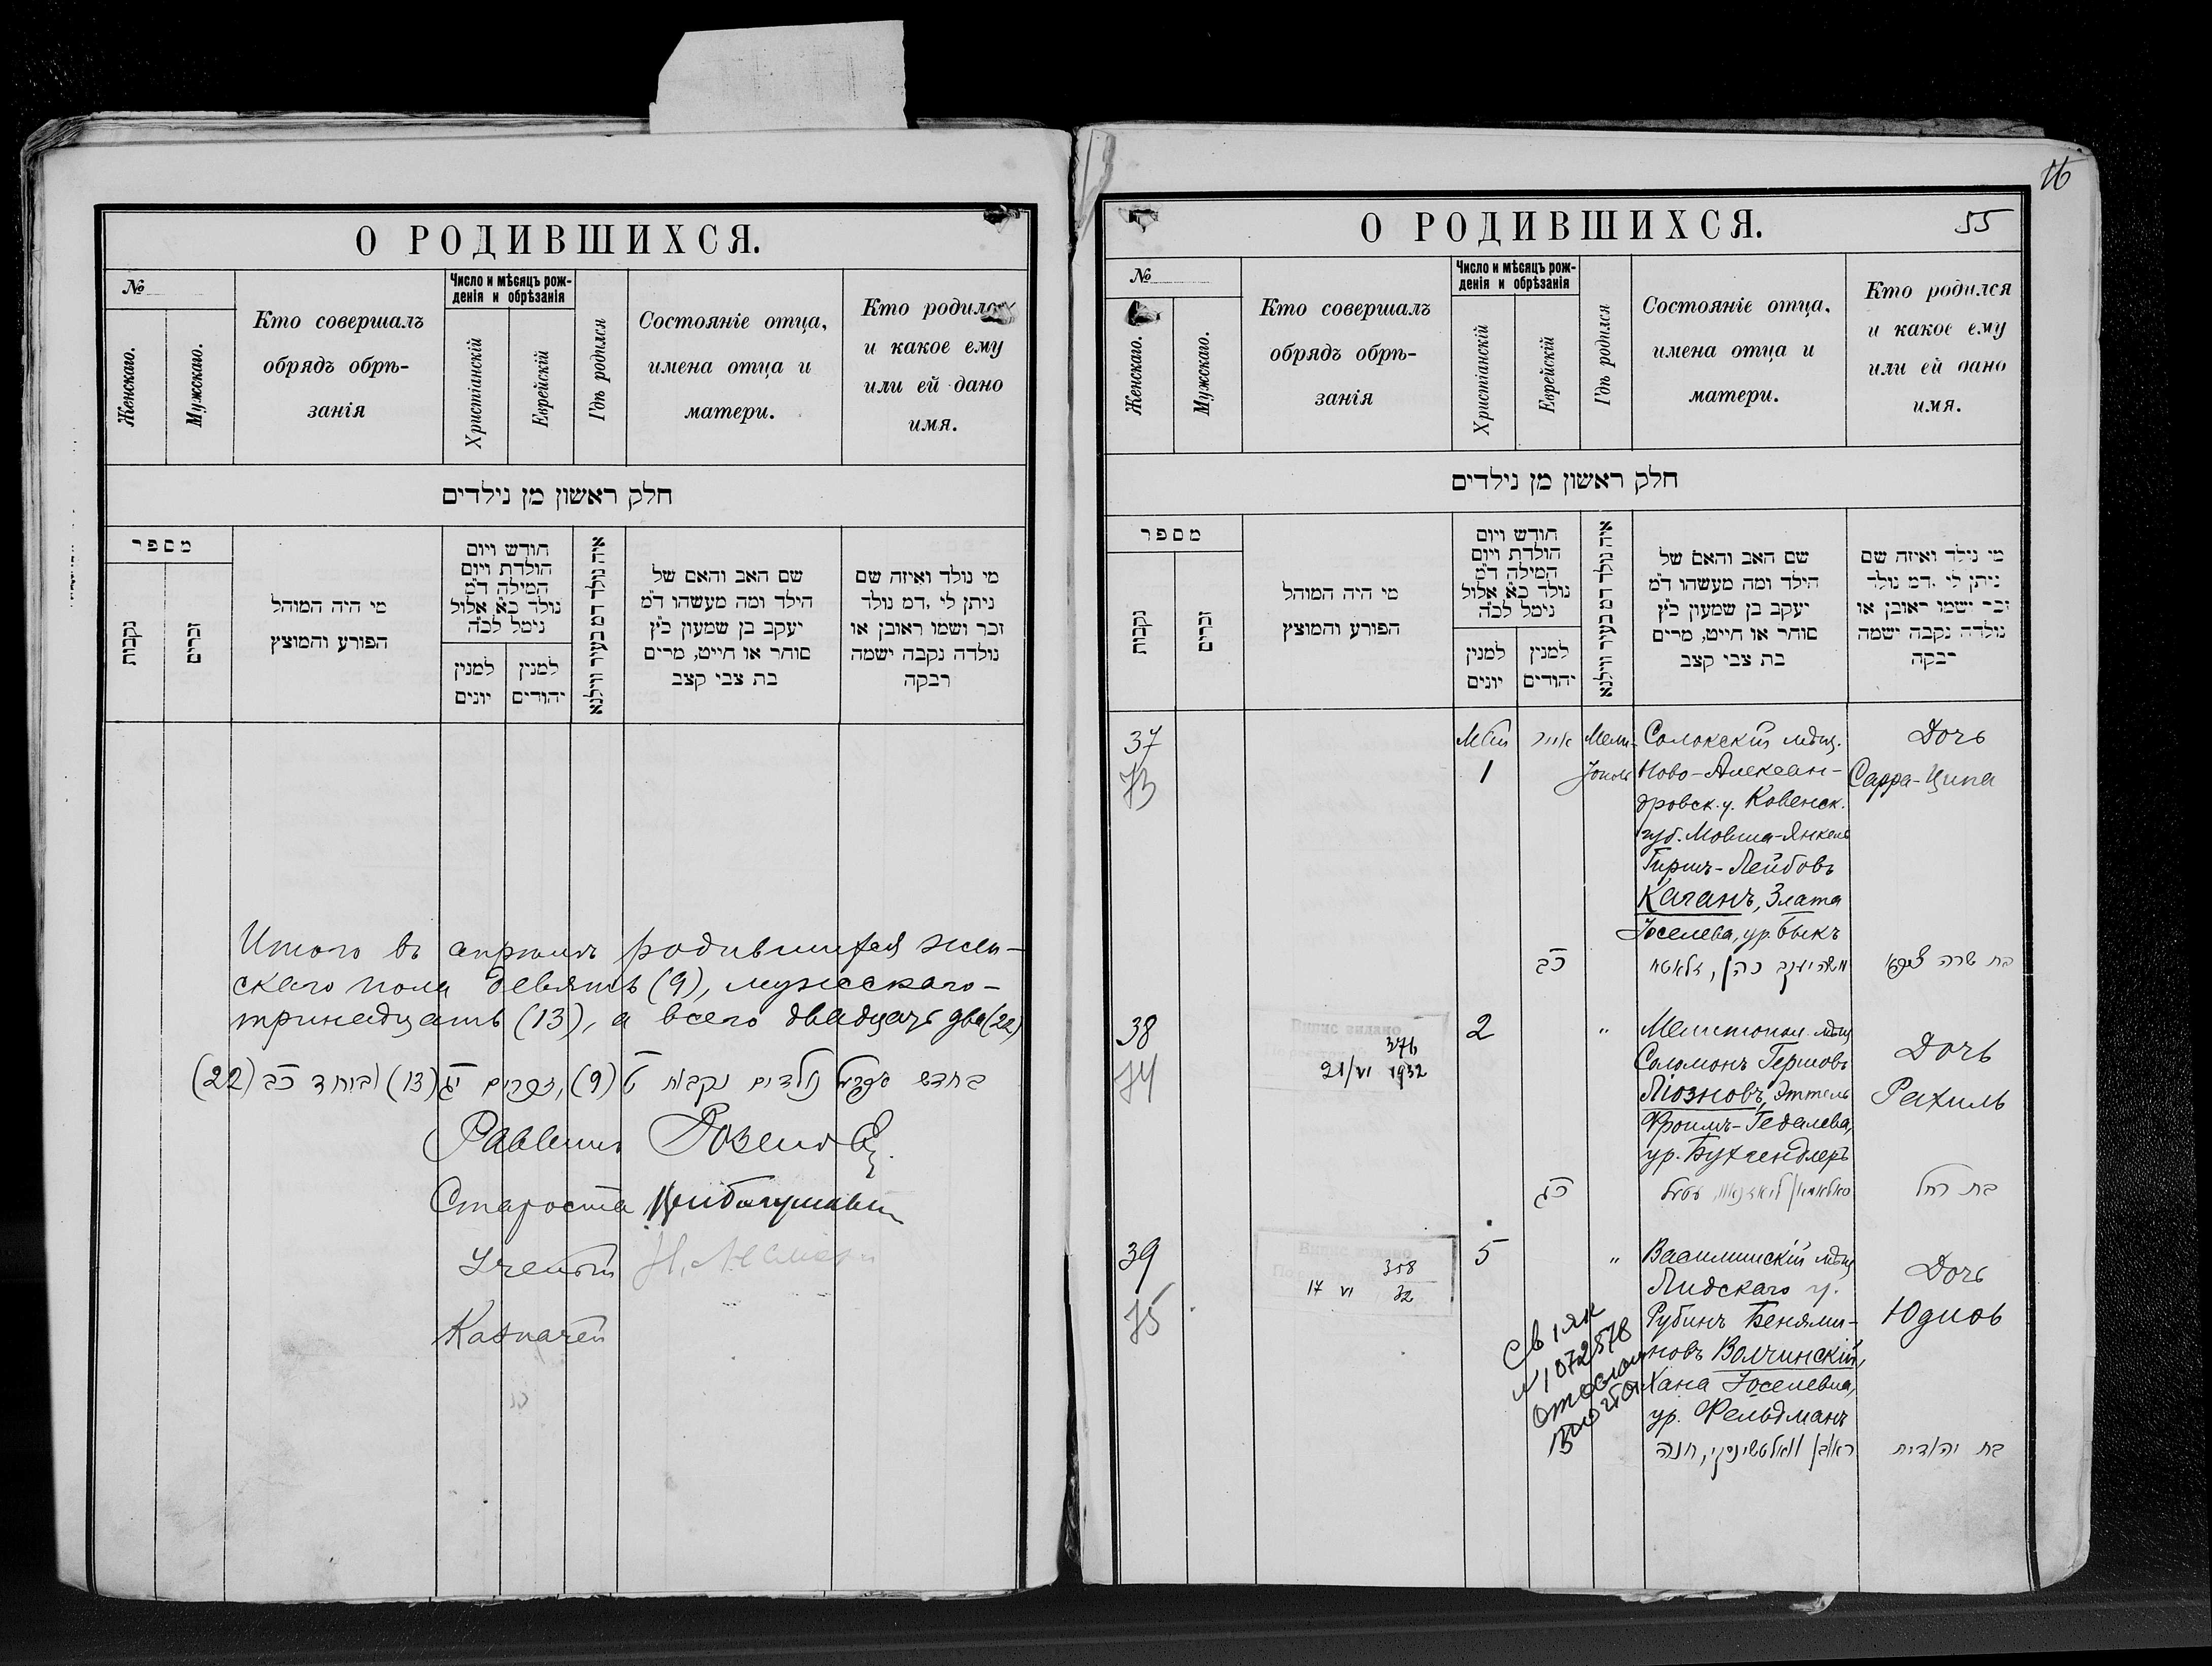 О РОДИВШИХСЯ.
№
Женскаго.
Мужскаго.
Кто совершалъ
обрядъ обрѣ-
занія
Число и мѣсяцъ рож-
денія и обрѣзанія
Христіанскій
Еврейскій
Гдѣ родился
Состояніе отца,
имена отца и
матери.
Кто родился
и какое ему
или ей дано
имя.
חלק ראשון מן נילדים
מספר
נקבות
זכרים
מי היה המוהל
הפורע והמוצץ
חודש ויום
הולדת ויום
המילה ד״מ
נולד כ״א אלול
נימל לכ״ה
למנין
יונים
למנין
יהודים
איה נולד דמ בעיר ווילנא
שם האב והאם של
הילד ומה מעשהו ד״מ
יעקב בן שמעון כ״ץ
סוחר או חייט, מרים
בת צבי קצב
מי נולד ואיזה שם
ניתן לי, דמ נולד
זכר ושמו ראובן או
נולדה נקבה ישמה
רבקה
Итого въ апрѣлѣ родившихся жен-
скаго пола девять (9), мужескаго-
тринадцать (13), а всего двадцать два (22)
בחדש אפריל נולדים נקבות ט (9), זכרים יג (13) וביחד כב (22)
Раввинъ
Староста
Ученый
Казначей
16
О РОДИВШИХСЯ.
55
№
Женскаго.
Мужскаго.
Кто совершалъ
обрядъ обрѣ-
занія
Число и мѣсяцъ рож-
денія и обрѣзанія
Христіанскій
Еврейскій
Гдѣ родился
Состояніе отца,
имена отца и
матери.
Кто родился
и какое ему
или ей дано
имя.
חלק ראשון מן נילדים
מספר
נקבות
זכרים
מי היה המוהל
הפורע והמוצץ
חודש ויום
הולדת ויום
המילה ד״מ
נולד כ״א אלול
נימל לכ״ה
למנין
יונים
למנין
יהודים
איה נולד דמ בעיר ווילנא
שם האב והאם של
הילד ומה מעשהו ד״מ
יעקב בן שמעון כ״ץ
סוחר או חייט, מרים
בת צבי קצב
מי נולד ואיזה שם
ניתן לי, דמ נולד
זכר ושמו ראובן או
נולדה נקבה ישמה
רבקה
37
73
Май
1
אייר
Мели-
тополь
Солокскій мѣщ.
Ново-Алексан-
дровск. у. Ковенск.
губ. Мовша-Янкель
Гиршъ-Лейбовъ
Каганъ, Злата
Іоселева, ур. Быкъ
Дочь
Сарра-Ципа
כב
משה יעקב כהן, זלאטא
בת שרה ציפא
38
74
Випис видано
376
21/VI 1932
2
"
Мелитопол. мѣщ
Соломонъ Гершовъ
Ліозновъ, Эттель
Фроимъ-Гедалева,
ур. Бухгендлеръ
Дочь
Рахиль
כג
בת רחל
39
75
Випис видано
358
17 VI 32
5
"
Василишскій мѣщ
Лидскаго у.
Рубинъ Бенями-
новъ Волчинскій,
Хана Іоселевна,
ур. Фельдманъ
Дочь
Юдиѳь
№ 1072578
ראובן וואלטשינסקי, חנה
בת יהודית